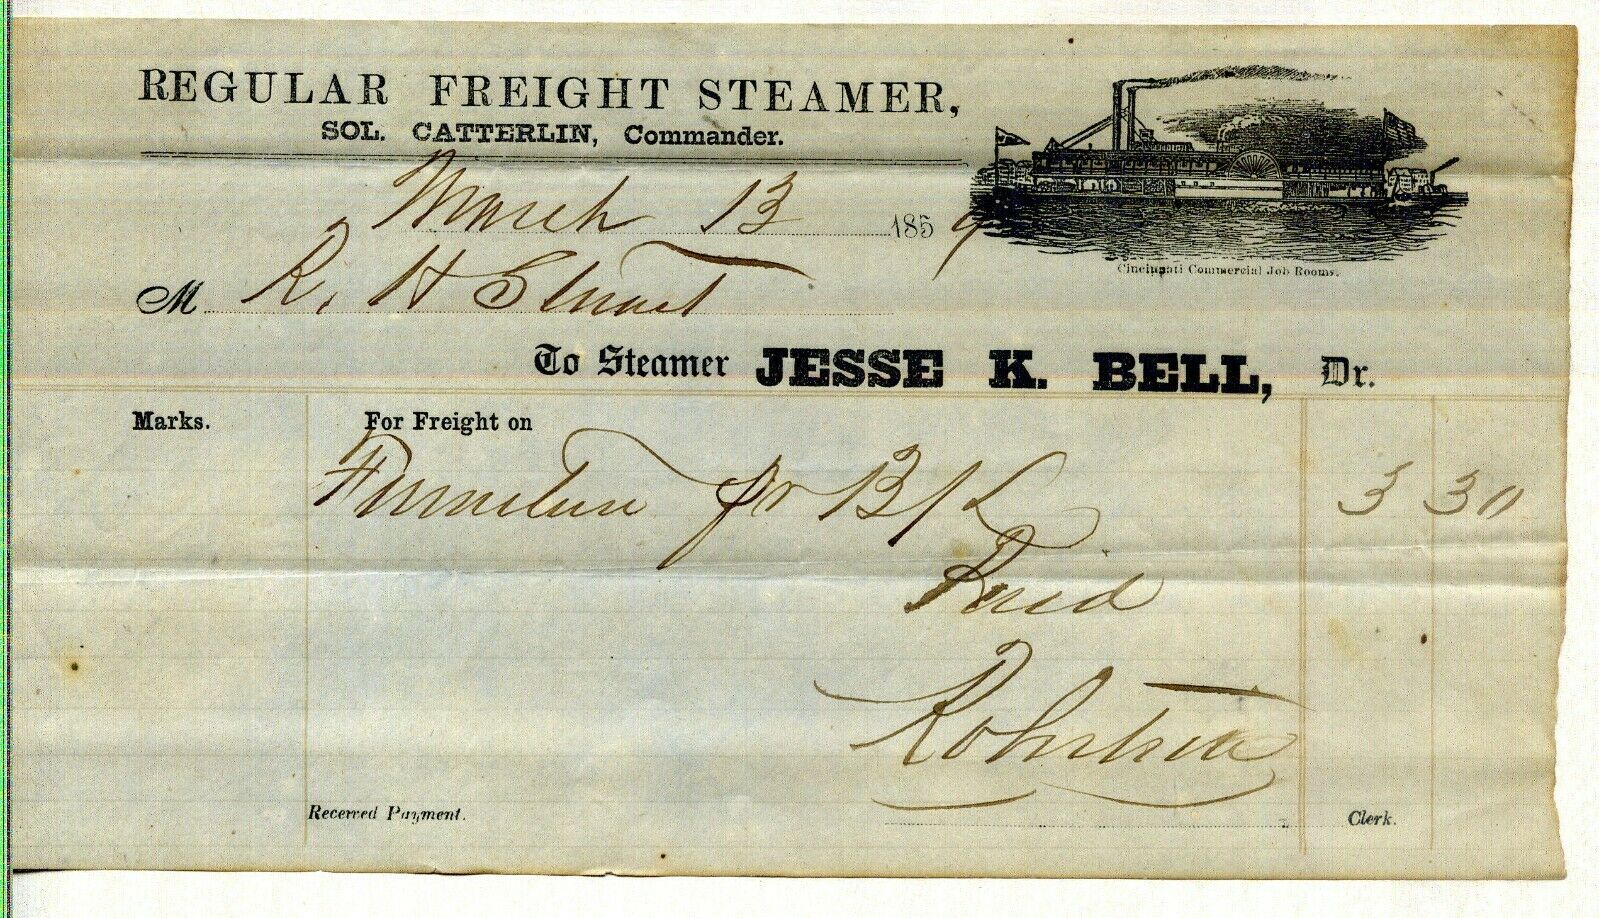 REGULAR FREIGHT STEAMER,
SOL. CATTERLIN, Commander.
March 13 1859
Cincinnati Commercial Job Rooms.
M R. H Stuart
To Steamer JESSE K. BELL, Dr.
Marks. For Freight on
Furniture pr B/L 3 30
Paid
Received Payment. Clerk.